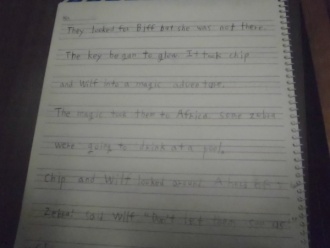 They looked for Biff but she was not there.
The key began to glow. It took chip
and Wilf into a magic adventure.
The magic took them to Africa. some zebra
were going to drink at a pool.
Chip and Wilf looked around.
Zebra! said Wilf. "Don't let them see us."